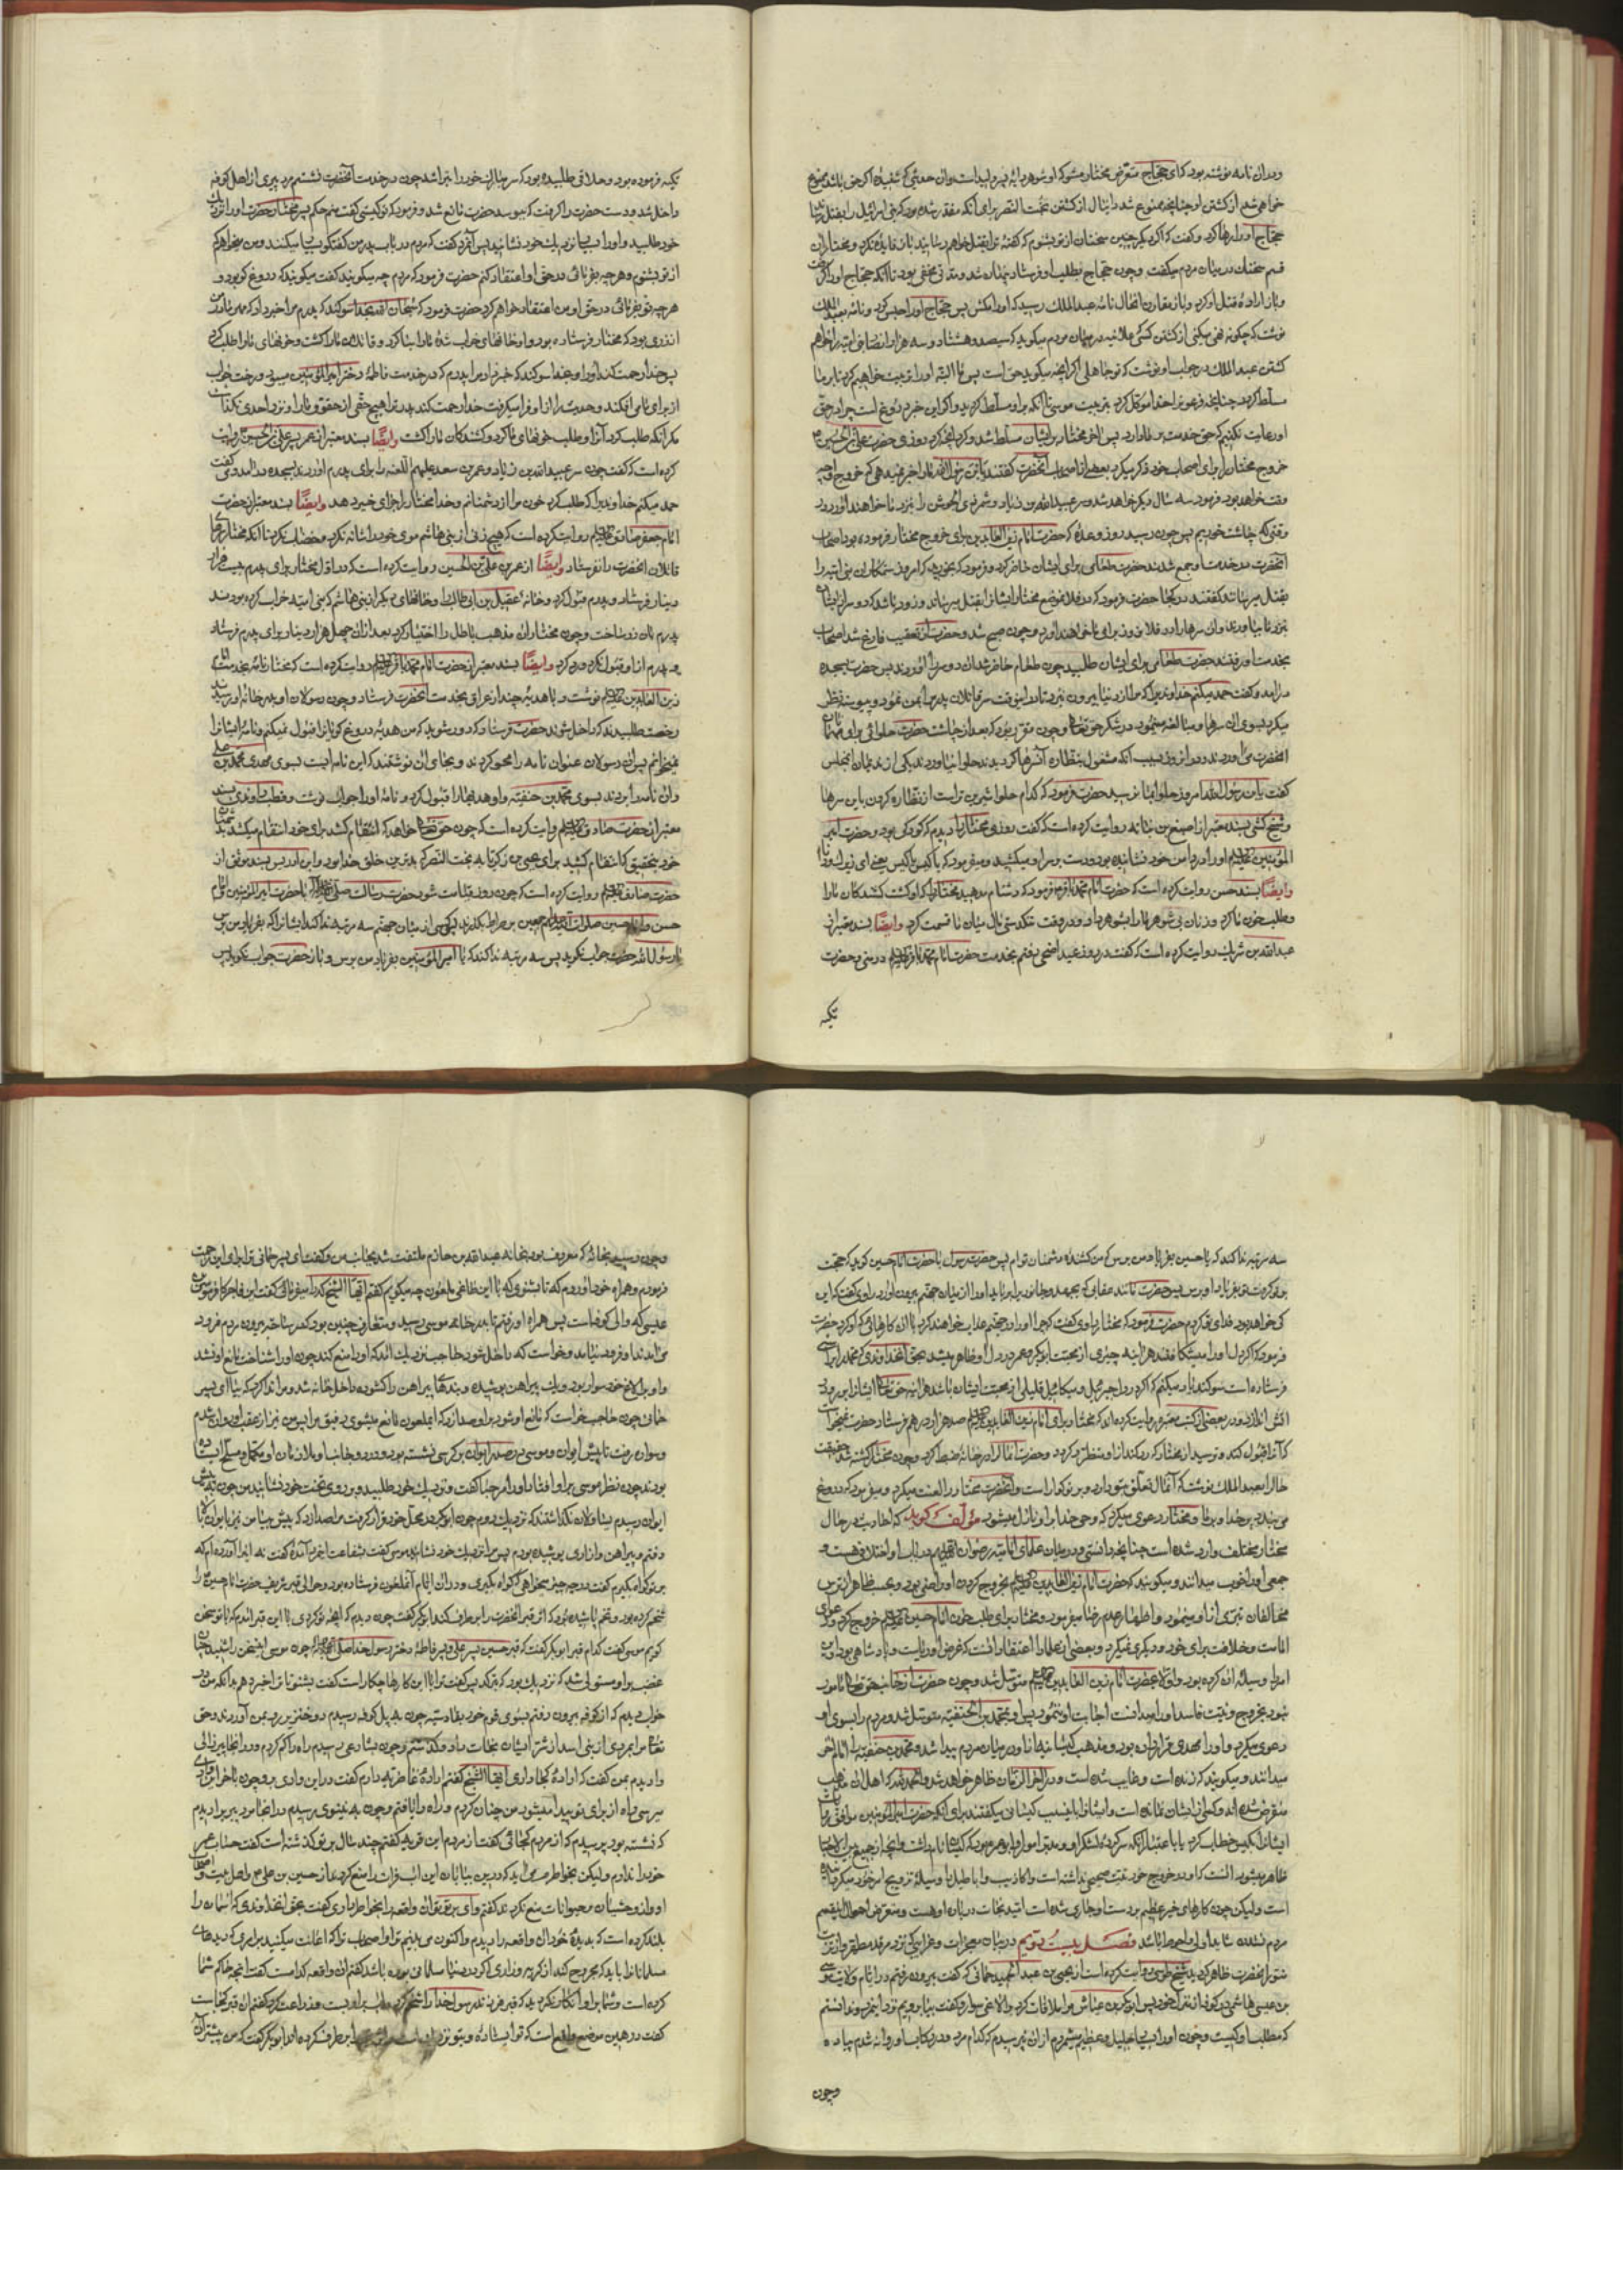 ودران نامه نوشته بود که ای حجاج متعرض مختار مشو که او شوهر دایهٔ پسر ولید است وان حدیثی که شنیدهٔ اگر حق باشد ممنوع
خواهی شد از کشتن او چنانچه ممنوع شد دانیال از کشتن بخت النصر برای آنکه مقدر شده بود که بنی اسرائیل را بقتل رساند
حجاج او را رها کرد و گفت که اگر دیگر چنین سخنان از تو بشنوم که گفتهٔ ترا بقتل خواهم رسانید باز فایده نکرد و مختار ازان
قسم سخنان در میان مردم میگفت و چون حجاج بطلب او فرستاد پنهان شد و مدتی مخفی بود تا آنکه حجاج او را گرفت
و باز ارادهٔ قتل او کرد و باز مقارن انحال نامهٔ عبدالملک رسید که او را مکش پس حجاج او را حبس کرد و نامه بعبدالملک
نوشت که چگونه نهی میکنی از کشتن کسی که علانیه در میان مردم میگوید که سیصد و هشتاد و سه هزار از انصار بنی امیه را خواهم
کشتن عبدالملک در جواب او نوشت که تو جاهلی اگر آنچه میگوید حق است پس ما البته او را تربیت خواهیم کرد تا بر ما
مسلط گردد چنانچه فرعون را خدا موکل کرد بتربیت موسی تا آنکه برا و مسلط گردید و اگر این خبر دروغ است چرا در حق
او رعایت نکنیم کسی که حق خدمت بر ما دارد پس اخر مختار بر ایشان مسلط شد و کرد آنچه کرد روزی حضرت علی بن الحسین
خروج مختار را برای اصحاب خود ذکر میکرد بعضی از اصحاب آنحضرت گفتند یا بن رسول الله ما را خبر نمیدهی که خروج او چه
وقت خواهد بود فرمود سه سال دیگر خواهد شد و سر عبیدالله بن زیاد و شمر ذی الجوش را بنزد ما خواهند اورد در
وقتی که چاشت خوریم پس چون رسید روز وعدهٔ که حضرت امام زین العابدین برای خروج مختار فرموده بود اصحاب
آنحضرت در خدمت او جمع شدند حضرت طعامی برای ایشان حاضر کرد و فرمود که بخورید که امروز ستمکاران بنی امیه را
بقتل میرسانند گفتند در کجا حضرت فرمود که در فلان موضع مختار ایشانرا بقتل میرساند و زود باشد که دو سر از ایشان
بنزد ما بیاورند وان سرها را در فلان روز برای ما خواهند اورد و چون صبح شد و حضرت از تعقیب فارغ شد اصحاب
بخدمت او رفتند حضرت طعامی برای ایشان طلبید چون طعام حاضر شد ان دو سر را اوردند پس حضرت بسجده
درامد و گفت حمد میکنم خداوندی را که مرا از دنیا بیرون نبرد تا در این وقت سر قاتلان پدرم را بمن نمود و پیوسته نظر
میکرد بسوی ان سرها و مبالغه مینمود در شکر حق تعالی و چون مقرر بود که بعد از چاشت حضرت حلوائی برای مهمانان
آنحضرت می اوردند در ان روز بسبب آنکه مشغول بنظاره آن سرها گردیدند حلوا نیاوردند یکی از ندیمان انمجلس
گفت یا بن رسول الله امروز حلوا بما نرسید حضرت فرمود که کدام حلوا شیرین تر است از نظاره کردن باین سرها
و شیخ کشی بسند معتبر از اصبغ بن نباته روایت کرده است که گفت روزی مختار را دیدم که کودکی بود و حضرت امیر
المؤمنین علیه السلام او را در دامن خود نشانیده بود و دست بر سر او میکشید و میفرمود که یا کیس یا کیس یعنی ای زیرک و دانا
وایضًا بسند حسن روایت کرده است که حضرت امام محمد باقر فرمود که دشنام مدهید مختار را که او کشت کشندکان ما را
و طلب خون ما کرد و زنان بی شوهر ما را بشوهر داد و در وقت تنگدستی مال میان ما قسمت کرد وایضًا بسند معتبر از
عبدالله بن شریک روایت کرده است که گفت در روز عید اضحی رفتم بخدمت حضرت امام محمد باقر علیه السلام در منی و حضرت
تکیه
تکیه فرموده بود و حلاقی طلبیده بود که سر مبارک خود را بتراشد چون در خدمت آنحضرت نشستم مرد پیری از اهل کوفه
داخل شد و دست حضرت را گرفت که ببوسد حضرت مانع شد و فرمود که تو کیستی گفت منم حکم پسر مختار حضرت او را نزدیک
خود طلبید و او را بسیار نزدیک خود نشانید پس آنمرد گفت که مردم در باب پدر من گفتگو بسیار میکنند و من میخواهم که
از تو بشنوم و هر چه بفرمائی در حق او اعتقاد کنم حضرت فرمود که مردم چه میگویند گفت میگویند که دروغ گو بود و
هر چه تو بفرمائی در حق او من اعتقاد خواهم کرد حضرت فرمود که سبحان الله بخدا سوگند که پدرم مرا خبر داد که مهر مادر من
از زری بود که مختار فرستاده بود و او خانهای خراب شدهٔ ما را بنا کرد و قاتلان ما را کشت و خونهای ما را طلب کرد
پس خدا رحمت کند او را و بخدا سوگند که خبر داد مرا پدرم که در خدمت فاطمهٔ دختر امیر المؤمنین میبود و رخت خواب
از برای او می افکند و حدیث را از او فرا میگرفت خدا رحمت کند پدر ترا هیچ حقی از حقوق ما را نزد احدی نگذاشت
مگر انکه طلب کرد آنرا و طلب خونهای ما کرد و کشندکان ما را کشت وایضًا بسند معتبر از عمر پسر علی بن الحسین روایت
کرده است که گفت چون سر عبیدالله بن زیاد و عمر بن سعد علیهم اللعنه را برای پدرم اوردند بسجده درامد و گفت
حمد میکنم خداوندی را که طلب کرد خون مرا از دشمنانم و خدا مختار را جزای خیر دهد وایضًا بسند معتبر از حضرت
امام جعفر صادق علیه السلام روایت کرده است که هیچ زنی از بنی هاشم موی خود را شانه نکرد و خضاب نکرد تا آنکه مختار سرهای
قاتلان انحضرت را فرستاد وایضًا از عمر بن علی بن الحسین روایت کرده است که در اول مختار برای پدرم بیست هزار
دینار فرستاد و پدرم قبول کرد و خانهٔ عقیل بن ابی طالب را و خانهای دیگر از بنی هاشم که بنی امیه خراب کرده بودند
پدرم بان زر ساخت و چون مختار ان مذهب باطل را اختیار کرد بعد ازان چهل هزار دینار برای پدرم فرستاد
و پدرم از او قبول نکرد و رد کرد وایضًا بسند معتبر از حضرت امام محمد باقر علیه السلام روایت کرده است که مختار نامهٔ بخدمت امام
زین العابدین علیه السلام نوشت و با هدیهٔ چند از عراق بخدمت آنحضرت فرستاد و چون رسولان او بدر خانهٔ او رسیدند
رخصت طلبیدند که داخل شوند حضرت فرستاد که دور شوید که من هدیهٔ دروغ گویانرا قبول نمیکنم و نامهٔ ایشانرا
نمیخوانم پس ان رسولان عنوان نامه را محو کردند و بجای ان نوشتند که این نامه ایست بسوی مهدی محمد بن علی
وان نامه را بردند بسوی محمد بن حنفیه و او هدیها را قبول کرد و نامهٔ او را جواب نوشت و قطب راوندی بسند
معتبر از حضرت صادق علیه السلام روایت کرده است که چون حق تعالی خواهد که انتقام کشد برای خود انتقام میکشد
خود بتحقیق که انتقام کشید برای یحیی بن زکریا به بخت النصر که بدترین خلق خدا بود و ابن ادریس بسند موثق از
حضرت صادق علیه السلام روایت کرده است که چون روز قیامت شود حضرت رسالت صلی الله علیه وآله با حضرت امیر المؤمنین و امام
حسن و امام حسین صلوات الله علیهم اجمعین بر صراط بگذرند پس کسی از میان جهنم سه مرتبه ندا کند ایشانرا که بفریاد من برس
یا رسول الله حضرت جواب نگوید پس سه مرتبه ندا کند که یا امیر المؤمنین بفریاد من برس و باز حضرت جواب نگوید پس
سه مرتبه ندا کند که یا حسین بفریاد من برس که من کشنده دشمنان توام پس حضرت رسول با حضرت امام حسین گوید که حجت
بر تو گرفت بفریاد او برس پس حضرت مانند عقابی که بجهد و جانوری را برباید او را از میان جهنم بیرون اورد راوی گفت که این
که خواهد بود فدای تو گردم حضرت فرمود که مختار راوی گفت که چرا او را در جهنم عذاب خواهند کرد با ان کارهائی که او کرد حضرت
فرمود که اگر دل او را میشکافتند هراینه چیزی از محبت ابوبکر و عمر در دل او ظاهر میشد بحق آنخداوندی که محمد را براستی
فرستاده است سوگند یاد میکنم که اگر در دل جبرئیل و میکائیل قلیلی از محبت ایشان باشد هراینه حق تعالی ایشانرا برو در
اتش اندازد و در بعضی از کتب معتبره روایت کرده اند که مختار برای امام زین العابدین علیه السلام صد هزار درهم فرستاد حضرت نمیخواست
که آنرا قبول کند و ترسید از مختار که رد کند از او متضرر گردد و حضرت ان مال را در خانه ضبط کرد و چون مختار کشته شد حقیقت
حال را بعبدالملک نوشت که آنمال تعلق بتو دارد و بر تو گوارا است و آنحضرت مختار را لعنت میکرد و میفرمود که دروغ
می بندد بر خدا و بر ما و مختار دعوی میکرد که وحی خدا بر او نازل میشود مؤلف گوید که احادیث در حال
مختار مختلف وارد شده است چنانچه دانستی و در میان علمای امامیه رضوان الله علیهم در باب او اختلافی هست و
جمعی او را خوب میدانند و میگویند که حضرت امام زین العابدین علیه السلام بخروج کردن او راضی بود و بحسب ظاهر از ترس
مخالفان تبری از او مینمود و اظهار عدم رضا میفرمود و مختار برای طلب خون امام حسین علیه السلام خروج کرد و دعوی
امامت و خلافت برای خود و دیگری نمیکرد و بعضی از علما را اعتقاد انست که غرض او ریاست و پادشاهی بود و این
امر را وسیلهٔ ان کرده بود و اولا بحضرت امام زین العابدین علیه السلام متوسل شد و چون حضرت از جانب حق تعالی مامور
نبود بخروج و نیت فاسد او را میدانست اجابت او ننمود پس او بمحمد بن الحنفیه متوسل شد و مردم را بسوی او
دعوی میکرد و او را مهدی قرار داده بود و مذهب کیسانیه از او در میان مردم پیدا شد و محمد بن حنفیه را امام اخر
میدانند و میگویند که زنده است و غایب شده است و در اخر الزمان ظاهر خواهد شد والحمد لله که اهل ان مذهب
منقرض شده اند و کسی از ایشان نمانده است و ایشانرا باین سبب کیسانی میگفتند برای آنکه حضرت امیر المؤمنین موافق
ایشانرا کیس خطاب کرد یا باعتبار آنکه سرکردهٔ لشکر او و مدبر امور او ابو عمره بود که کیسان نام داشت و آنچه از جمیع بین الاخبار
ظاهر میشود انست که او در خروج خود نیت صحیحی نداشته است و اکاذیب و اباطیل را وسیلهٔ ترویج امر خود میکرده
است ولیکن چون کارهای خیر عظیم بر دست او جاری شده است امید نجات در باره او هست و متعرض احوال اینقسم
مردم نشدن شاید اولی و احوط باشد فصل بیست و نهم در بیان معجزات و غرایبی که نزد مرقد مطهر و از تربت
منور انحضرت ظاهر گردید شیخ طوسی روایت کرده است از یحیی بن عبدالحمید حمانی که گفت بیرون رفتم در ایام ولایت موسی
بن عیسی هاشمی در کوفه از منزل خود پس ابوبکر بن عیاش مرا ملاقات کرد بر الاغی سوار و گفت بیا برویم نزد اینمرد من ندانستم
که مطلب او کیست و چون او را بسیار جلیل و عظیم میشمردم از ان نپرسیدم که کدام مرد و در رکاب او روانه شدم پیاده
وچون
وچون رسید بخانهٔ که معروف بود بخانهٔ عبدالله بن حازم ملتفت شد بجانب من و گفت ای پسر حمانی ترا برای این زحمت
فرمودم و همراه خود اوردم که تا بشنوی که با این طاغی ملعون چه میگویم گفتم ایها الشیخ کدام را میفرمائی گفت این فاجر کافر موسی بن
عیسی که والی کوفه است پس همراه او رفتم تا بدر خانهٔ موسی رسید و متعارف چنین بود که در ساحت بیرون مردم فرود
می امدند او فرود نیامد و خواست که داخل شود حاجب نزدیک امد که او را منع کند چون او را شناخت مانع او نشد
و او بر الاغ خود سوار بود و یک پیراهن پوشیده و بندهای پیراهن را گشوده داخل خانه شد و مرا ندا کرد که بیا ای پسر
حمانی چون حاجب خواست که مانع او شود بر او صدا زد که ایملعون مانع میشوی رفیق مرا پس من نیز از عقب او روان شدم
و سواره رفت تا پیش ایوان و موسی در صدر ایوان بر کرسی نشسته بود و در دو جانب او ملازمان او مکمل و مسلح ایستاده
بودند چون نظر موسی بر او افتاد او را مرحبا گفت و نزدیک خود طلبید و بر روی تخت خود نشانید من چون بپیش
ایوان رسیدم یساولان نگذاشتند که نزدیک روم چون ابوبکر در محل خود قرار گرفت مرا صدا زد که پیش بیا من نیز بایوان بالا
رفتم و پیراهن و ازاری پوشیده بودم پس مرا نزدیک خود نشانید موسی گفت بشفاعت اینمرد آمدهٔ گفت نه اورا آورده ام که
بر تو گواه بگیرم گفت در چه چیز میخواهی که گواه بگیری و در ان ایام آنملعون فرستاده بود و حوالی قبر شریف حضرت امام حسین را
شخم کرده بود و تخم پاشیده بود که اثر قبر انحضرت را برطرف کند ابوبکر گفت چون دیدم که آنچه تو کردی با این قبر امدم که با تو سخن
گویم موسی گفت کدام قبر ابوبکر گفت که قبر حسین پسر علی و پسر فاطمهٔ دختر رسول خدا صلی الله علیه وآله چون موسی اینسخن را شنید چنان
غضب بر او مستولی شد که نزدیک بود که بترکد پس گفت ترا با این کارها چکار است گفت بشنو تا ترا خبر دهم بدانکه من در
خواب دیدم که از کوفه بیرون رفتم بسوی قوم خود بقادسیه چون به پل کوفه رسیدم ده خنزیر رو بمن آوردند و حق
تعالی مرا بمردی از بنی اسد از شر ایشان نجات داد و گذشتم و چون بشاهی رسیدم راه را گم کردم و در انجا پیر زالی
را دیدم بمن گفت که ارادهٔ کجا داری ایها الشیخ گفتم ارادهٔ غاضریه دارم گفت در این وادی برو چون باخر این وادی
میرسی راه از برای تو پیدا میشود من چنان کردم و راه را یافتم و چون به نینوی رسیدم در انجا مرد پیری را دیدم
که نشسته بود پرسیدم که از مردم کجائی گفت از مردم این قریه گفتم چند سال بر تو گذشته است گفت حساب عمر
خود را ندارم ولیکن بخاطرم می اید که دیدم در بیابان این اب فرات را منع کردند از حسین بن علی و اهل بیت و اصحاب
او و از وحشیان و حیوانات منع نکردند گفتم وای بر تو تو ان واقعه را بخاطر داری گفت بحق آنخداوندی که آسمان را
بلند کرده است که بدیدهٔ خود ان واقعه را دیدم و اکنون می بینم ترا و اصحاب ترا که اعانت میکنید بر امری که دیدهای
مسلمانانرا باید که مجروح کند از گریه و زاری اگر در دنیا مسلمانی بوده باشد گفتم ان واقعه کدامست گفت انچه حاکم شما
کرده است و شما بر او انکار نکردید که قبر فرزند رسول خدا را شخم کرده اب بر او بست و زراعت کرد گفتم ان قبر کجاست
گفت در همین موضع واقع است که تو ایستادهٔ و بتو نزدیک است ابوبکر گفت که من پیشتر ان